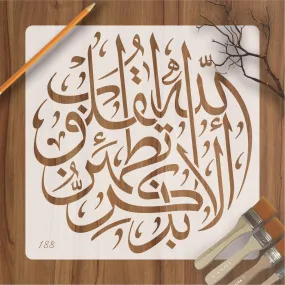 ألا بذكر الله تطمئن القلوب
188